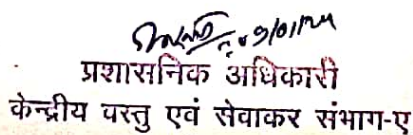 09/01/24
प्रशासनिक अधिकारी
केन्द्रीय वस्तु एवं सेवाकर संभाग-ए